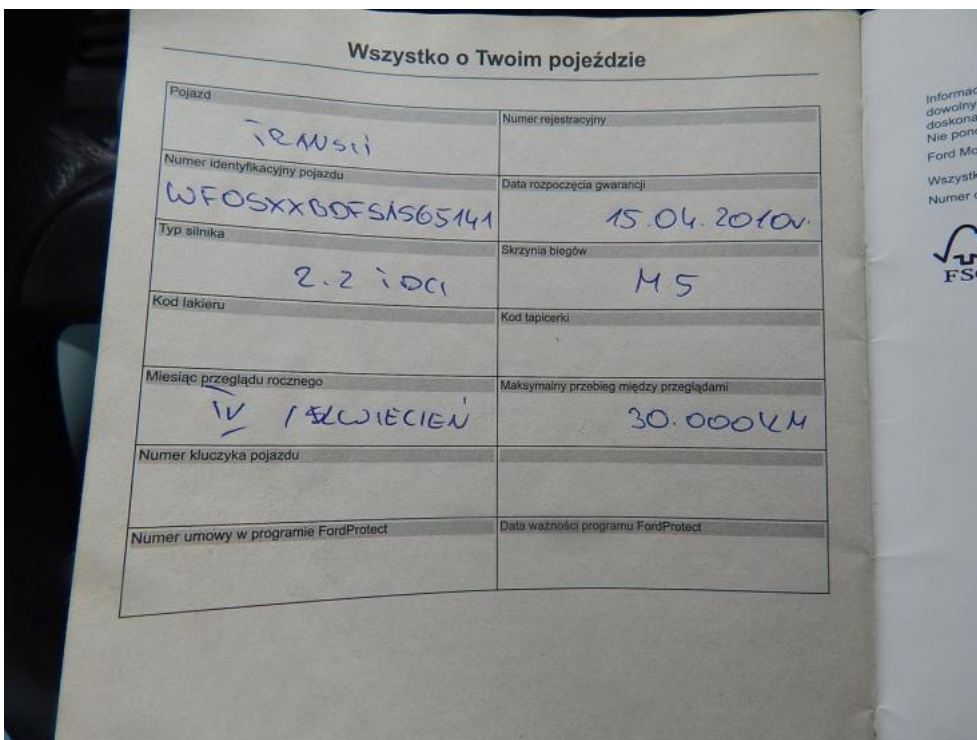 Wszystko o Twoim pojeździe
Pojazd
TRANSIT
Numer rejestracyjny
Numer identyfikacyjny pojazdu
WFOSXXBDFSAS65141
Data rozpoczęcia gwarancji
15.04.2010r.
Typ silnika
2.2 TDCI
Skrzynia biegów
M5
Kod lakieru
Kod tapicerki
Miesiąc przeglądu rocznego
IV / KWIECIEŃ
Maksymalny przebieg między przeglądami
30.000KM
Numer kluczyka pojazdu
Numer umowy w programie FordProtect
Data ważności programu FordProtect
Informac
dowolny
doskona
Nie pon
Ford Mo
Wszystk
Numer
FSC